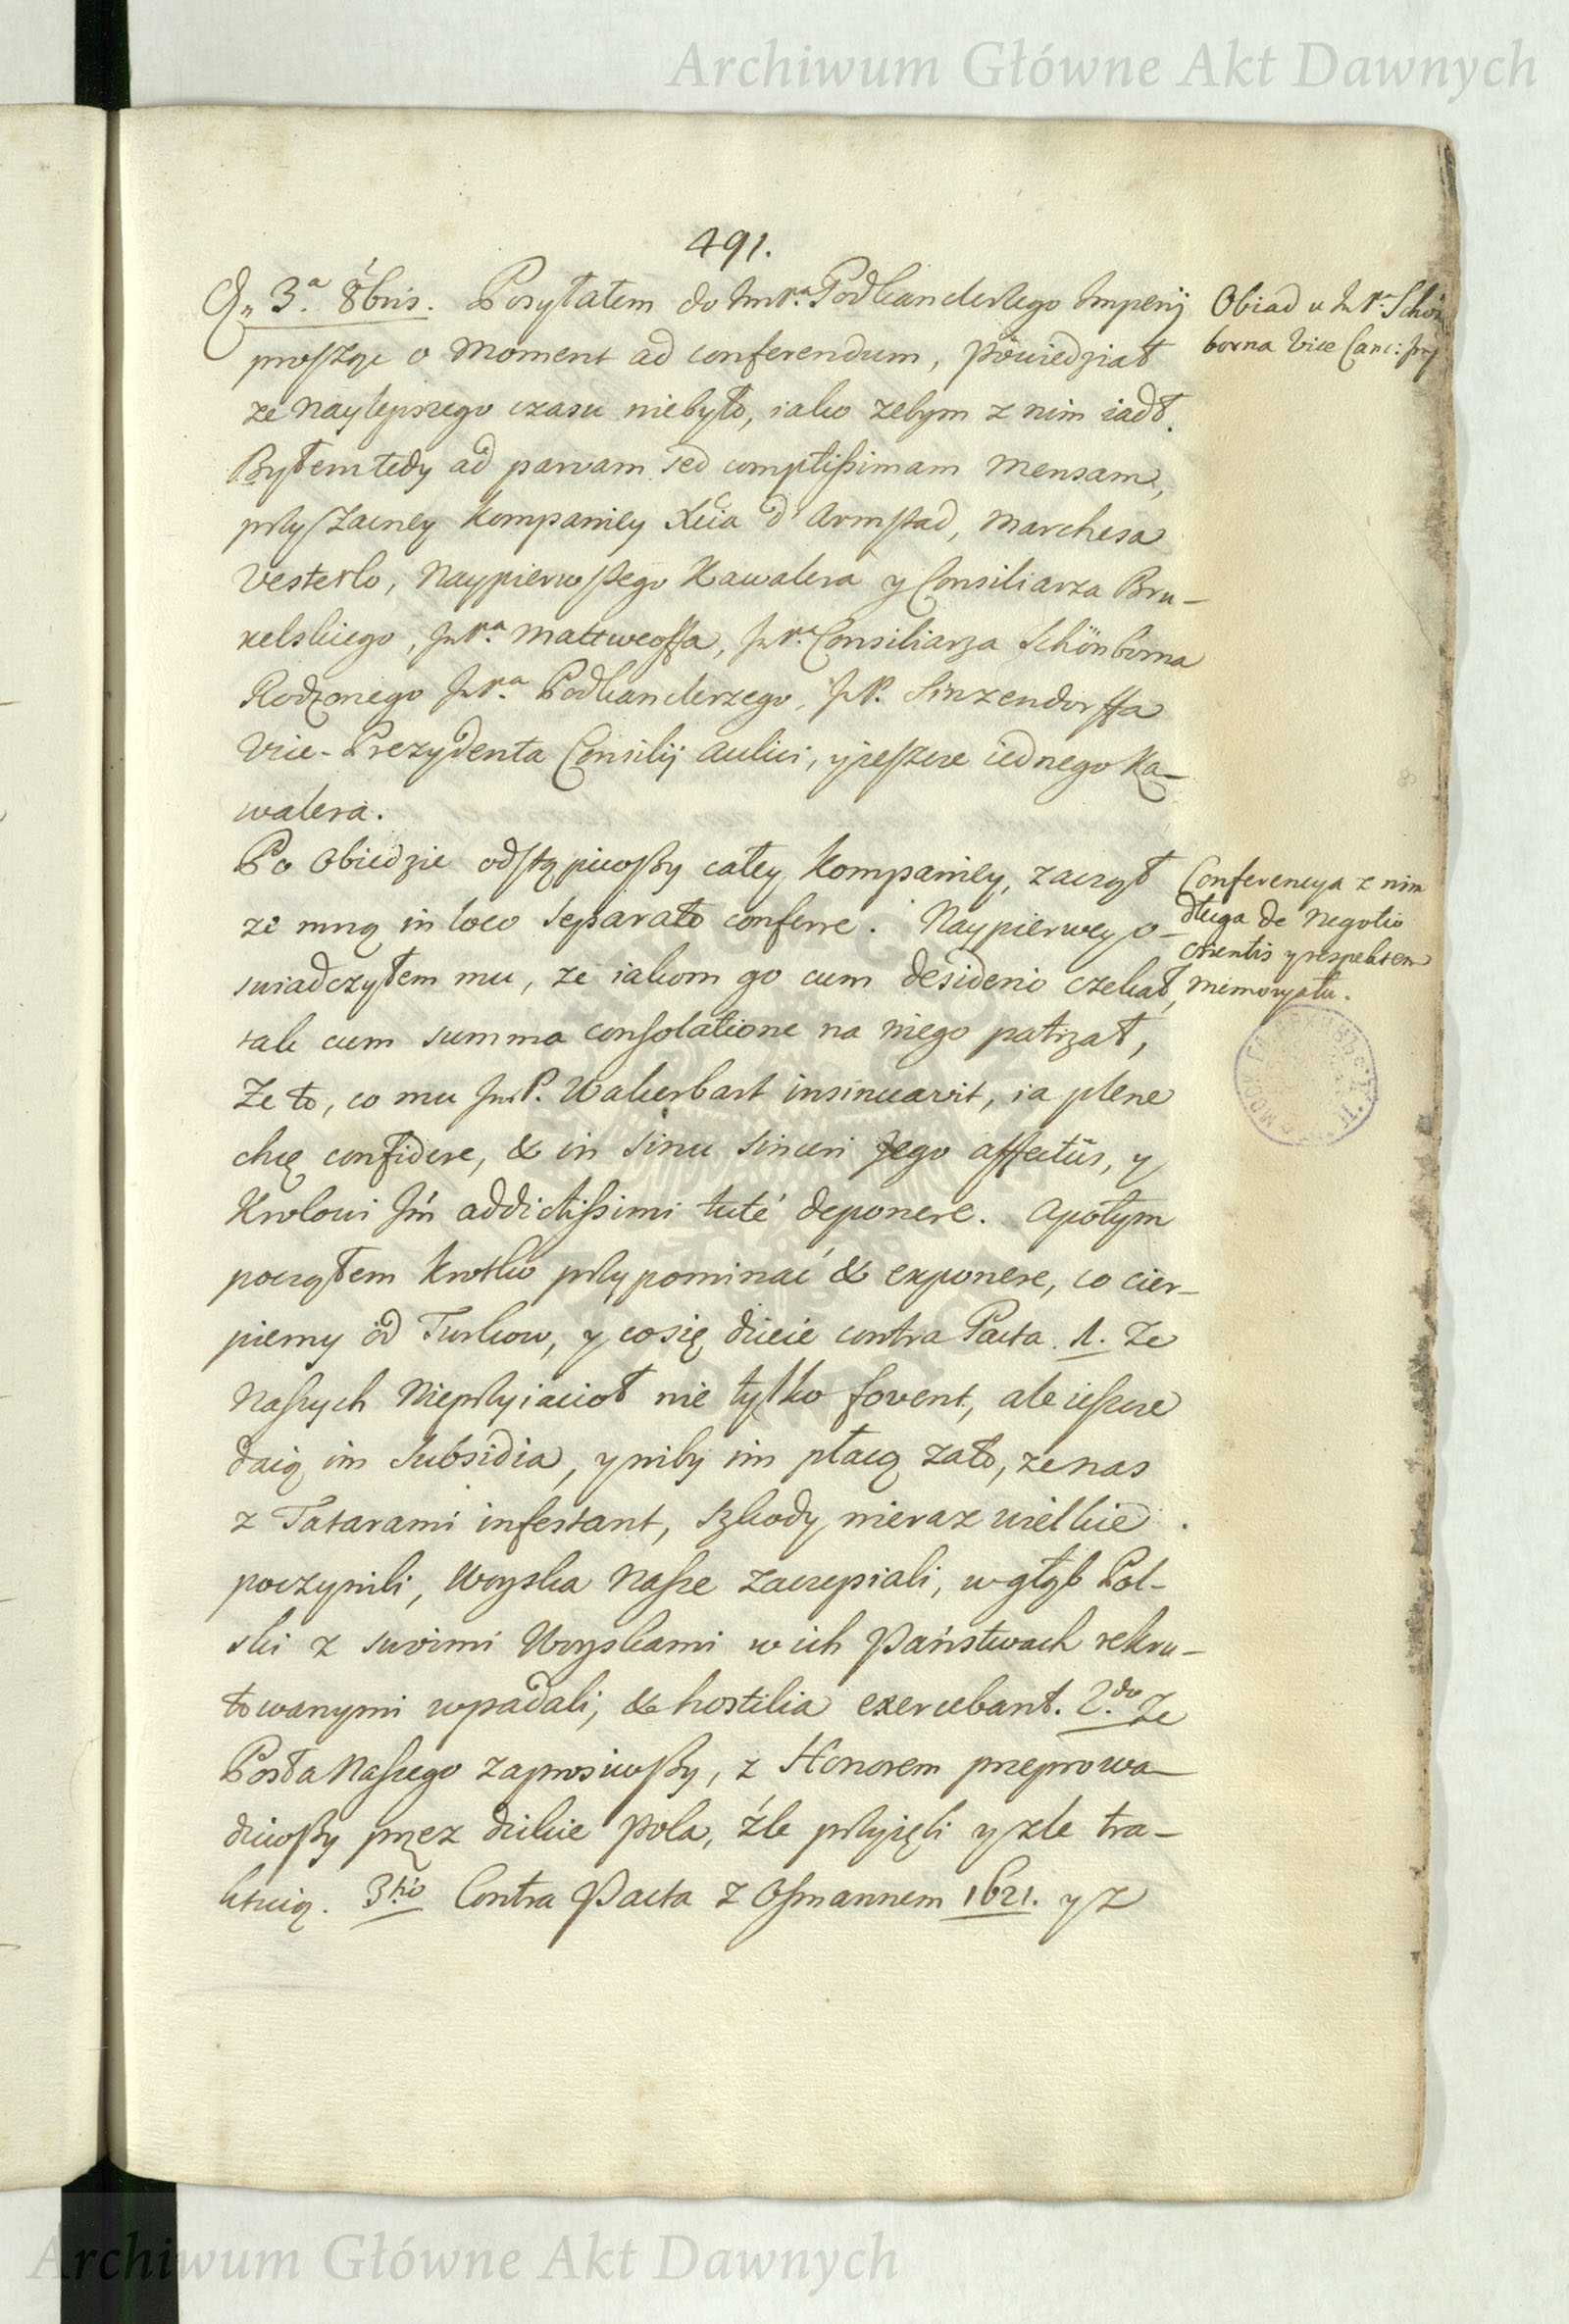 Archiwum Główne Akt Dawnych
491.
Dn 3.a 8bris. Posyłałem do Jmp.a Podkanclerzego Imperij
prosząc o moment ad conferendum, powiedział
ze naylepszego czasu niebyło, iako zebym z nim iadł.
Byłem tedy ad parvam sed comptissimam mensam,
przy zacney kompaniey Xcia d'Armstad, Marchesa
Vesterlo, Naypierwszego Kawalera y Consiliarza Bru-
xelskiego, JmP.a Mattweoffa, JmP.a Consiliarza Schönborna
Rodzonego JmP.a Podkanclerzego, JmP. Sinzendorffa
Vice-Prezydenta Consilij Aulici, y ieszcze iednego Ka-
walera.
Po obiedzie odstąpiwszy całey kompaniey, zaczął
ze mną in loco separato conferre. Naypierwey o-
swiadczyłem mu, ze iakom go cum desiderio czekał,
tak cum summa consolatione na niego patrzał,
Ze to, co mu JmP. Wakerbart insinuavit, ia plene
chcę confidere, & in sinu sinceri Jego affectûs, y
Krolowi Jm addictissimi tuté deponere. Apotym
począłem krotko przypominać & exponere, co cier-
piemy od Turkow, y co się dzieie contra Pacta. 1. Ze
Naszych Nieprzyiacioł nie tylko fovent, ale ieszcze
daią im subsidia, y niby im płacą zato, ze nas
z Tatarami infestant, szkody nieraz wielkie
poczynili, Woyska Nasze zaczepiali, w głąb Pol-
ski z swoimi Woyskami w ich Państwach rekru-
towanymi wpadali, & hostilia exercebant. 2.do Ze
Posła Naszego zaprosiwszy, z Honorem przeprowa-
dziwszy przez dzikie Pola, źle przyięli y zle tra-
ktuią. 3tió Contra Pacta z Osmannem 1621. y z
Obiad u JmP.a Schön
borna Vice Canc: Imp
Conferencya z nim
długa de Negotio
Orientis y respektem
memoryału.
Archiwum Główne Akt Dawnych